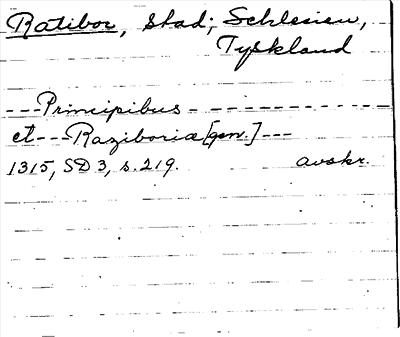 Ratibor, stad; Schlesien,
Tyskland
---Principibus---
et---Raziboriæ[gen.]---
1315, SD 3, s. 219. avskr.